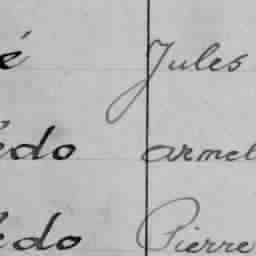 é Jules
édo Armel
édo Pierre